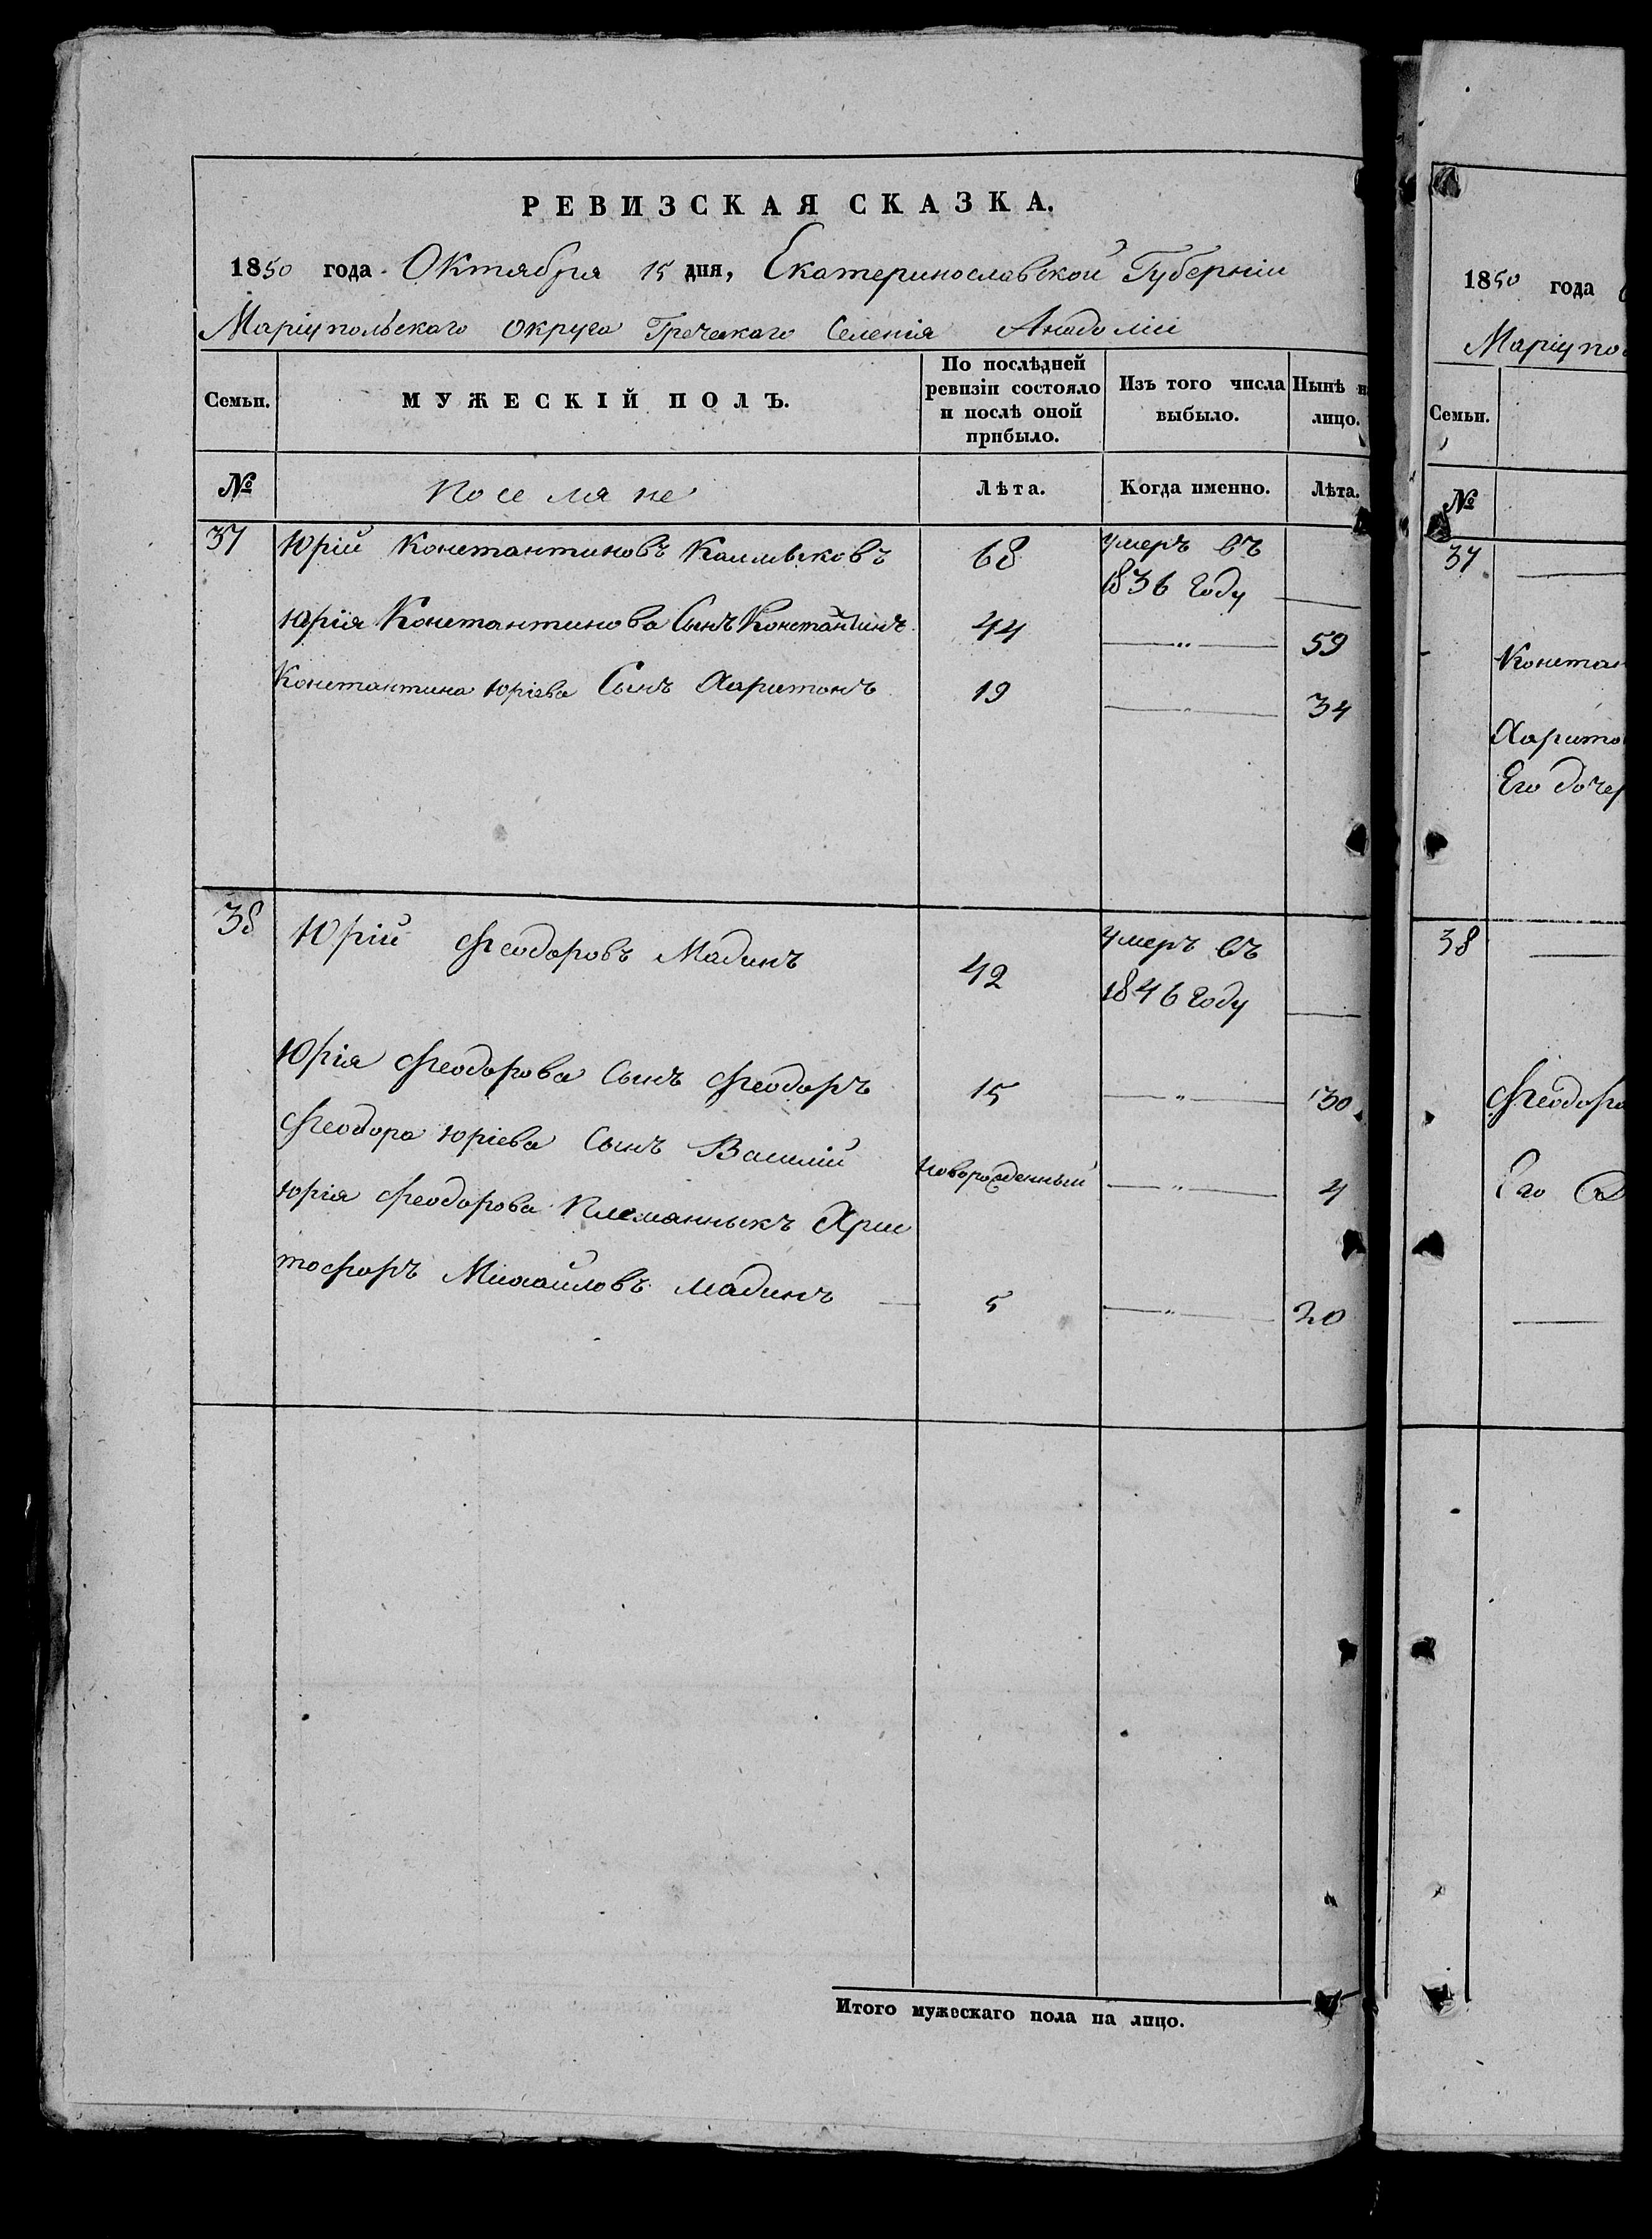 РЕВИЗСКАЯ СКАЗКА.
1850 года Октября 15 дня, Екатеринославской Губерніи
Маріупольскаго Округа Греческаго Селенія Анадоліи
Семьи. МУЖЕСКІЙ ПОЛЪ. По послѣдней ревизіи состояло и послѣ оной прибыло. Изъ того числа выбыло. Нынѣ на лицо.
№ Поселяне Лѣта. Когда именно. Лѣта.
37 Юрій Константиновъ Калмыковъ 68 умеръ въ 1836 году —
Юрія Константинова Сынъ Константинъ 44 —„— 59
Константина Юріева Сынъ Харитонъ 19 —„— 34
38 Юрій Феодоровъ Мадинъ 42 умеръ въ 1846 году —
Юрія Феодорова Сынъ Феодоръ 15 —„— 30
Феодора Юріева Сынъ Василій новорожденный —„— 4
Юрія Феодорова Племянныкъ Хрис
тофоръ Михайловъ Мадинъ — 5 —„— 20
Итого мужескаго пола на лицо.
1850 года
Маріупо
Семьи.
№
37 —
Констан
Харито
Его дочер
38 —
Феодора
Его